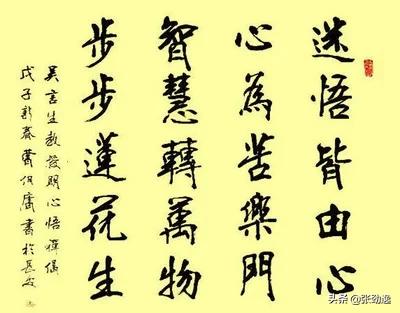 迷悟皆由心
心為苦樂門
智慧轉萬物
步步蓮花生
吴言生教授明心悟禪偈
戊子新春書於長安
头条 @张劲逸